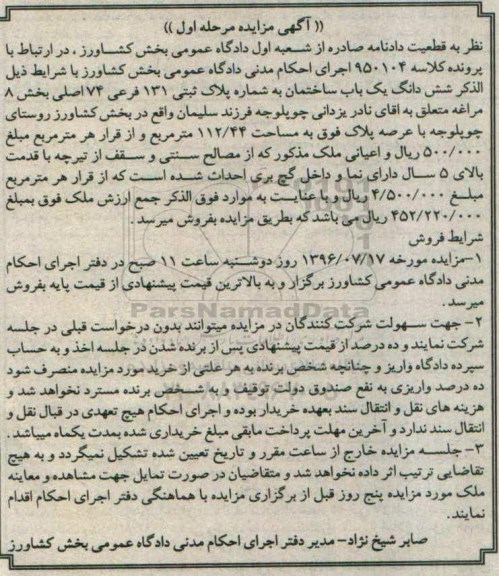 (( آگهی مزایده مرحله اول ))
نظر به قطعیت دادنامه صادره از شعبه اول دادگاه عمومی بخش کشاورز ، در ارتباط با
پرونده کلاسه ۹۵۰۱۰۴ اجرای احکام مدنی دادگاه عمومی بخش کشاورز با شرایط ذیل
الذکر شش دانگ یک باب ساختمان به شماره پلاک ثبتی ۱۳۱ فرعی ۷۴ اصلی بخش ۸
مراغه متعلق به اقای نادر یزدانی چوپلوجه فرزند سلیمان واقع در بخش کشاورز روستای
چوپلوجه با عرصه پلاک فوق به مساحت ۱۱۲/۴۴ مترمربع و از قرار هر مترمربع مبلغ
۵۰۰/۰۰۰ ریال و اعیانی ملک مذکور که از مصالح سنتی و سقف از تیرچه با قدمت
بالای ۵ سال دارای نما و داخل گچ بری احداث شده است که از قرار هر مترمربع
مبلغ ۴/۵۰۰/۰۰۰ ریال و با عنایت به موارد فوق الذکر جمع ارزش ملک فوق بمبلغ
۴۵۲/۲۲۰/۰۰۰ ریال می باشد که بطریق مزایده بفروش میرسد .
شرایط فروش
۱-مزایده مورخه ۱۳۹۶/۰۷/۱۷ روز دوشنبه ساعت ۱۱ صبح در دفتر اجرای احکام
مدنی دادگاه عمومی کشاورز برگزار و به بالاترین قیمت پیشنهادی از قیمت پایه بفروش
میرسد .
۲- جهت سهولت شرکت کنندگان در مزایده میتوانند بدون درخواست قبلی در جلسه
شرکت نمایند و ده درصد از قیمت پیشنهادی پس از برنده شدن در جلسه اخذ و به حساب
سپرده دادگاه واریز و چنانچه شخص برنده به هر علتی از خرید مورد مزایده منصرف شود
ده درصد واریزی به نفع صندوق دولت توقیف و به شخص برنده مسترد نخواهد شد و
هزینه های نقل و انتقال سند بعهده خریدار بوده و اجرای احکام هیچ تعهدی در قبال نقل و
انتقال سند ندارد و آخرین مهلت پرداخت مابقی مبلغ خریداری شده بمدت یکماه میباشد .
۳- جلسه مزایده خارج از ساعت مقرر و تاریخ تعیین شده تشکیل نمیگردد و به هیچ
تقاضایی ترتیب اثر داده نخواهد شد و متقاضیان در صورت تمایل جهت مشاهده و معاینه
ملک مورد مزایده پنج روز قبل از برگزاری مزایده با هماهنگی دفتر اجرای احکام اقدام
نمایند.
صابر شیخ نژاد- مدیر دفتر اجرای احکام مدنی دادگاه عمومی بخش کشاورز
ParsNamadData